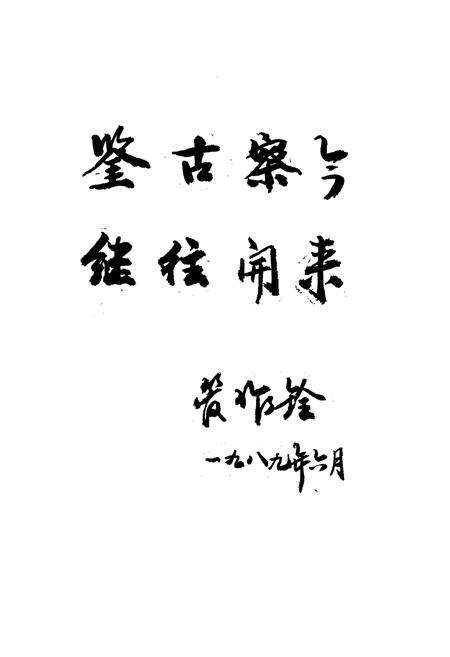 鉴古察今
继往开来
作铨
一九八九年六月